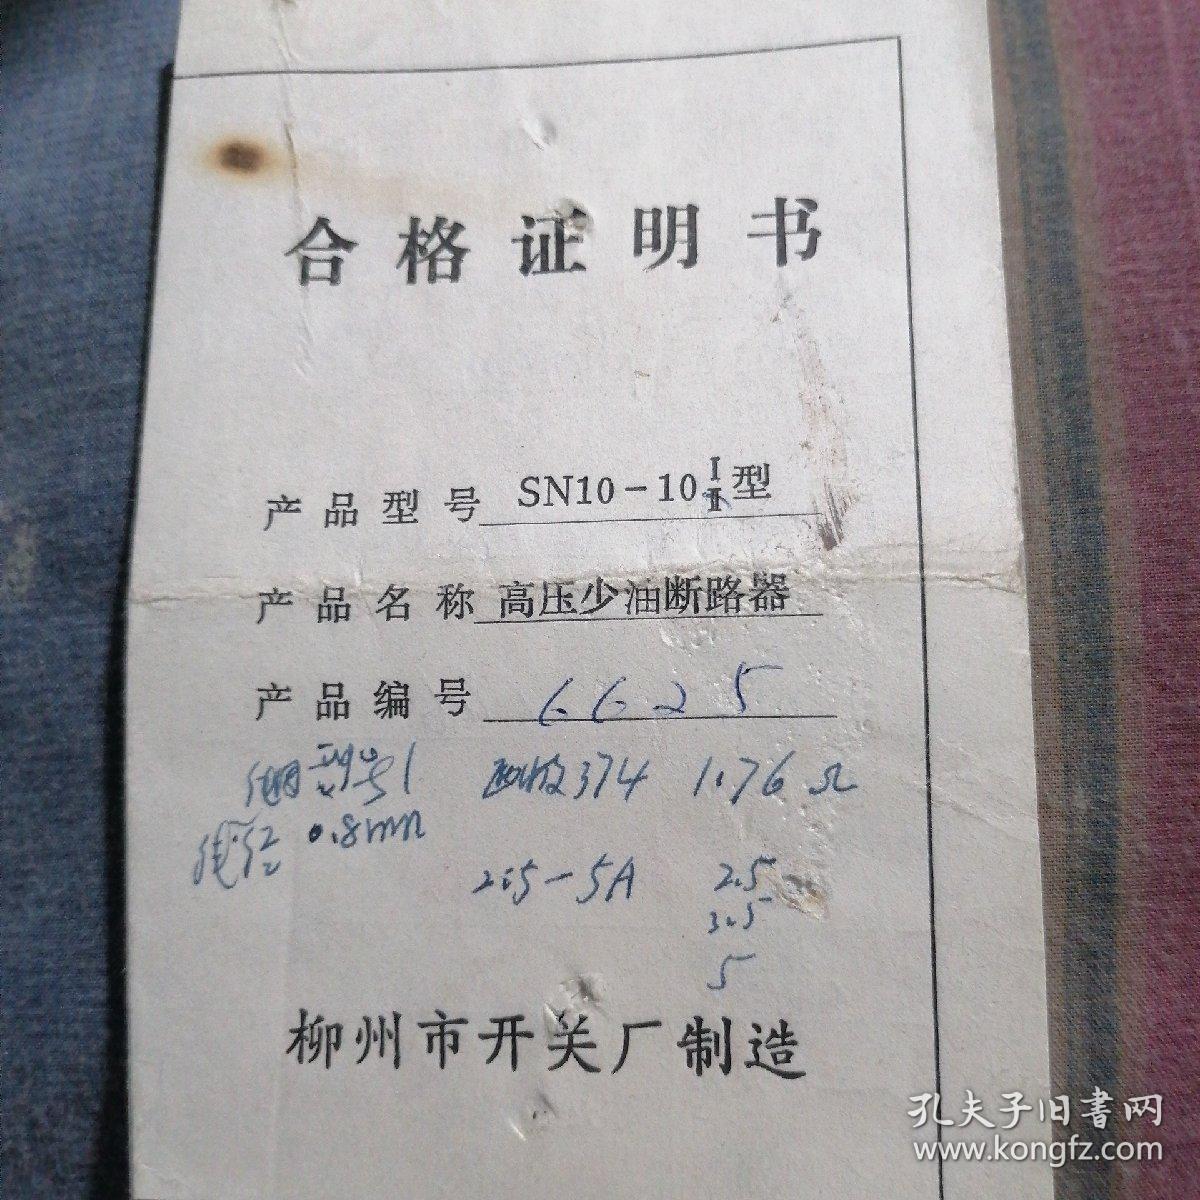 合格证明书
产品型号 SN10-10 Ⅰ/Ⅱ型
产品名称 高压少油断路器
产品编号 6625
型号1 374 1.76Ω
线径 0.8mm
2.5-5A 2.5
3.5
5
柳州市开关厂制造
孔夫子旧書网
www.kongfz.com